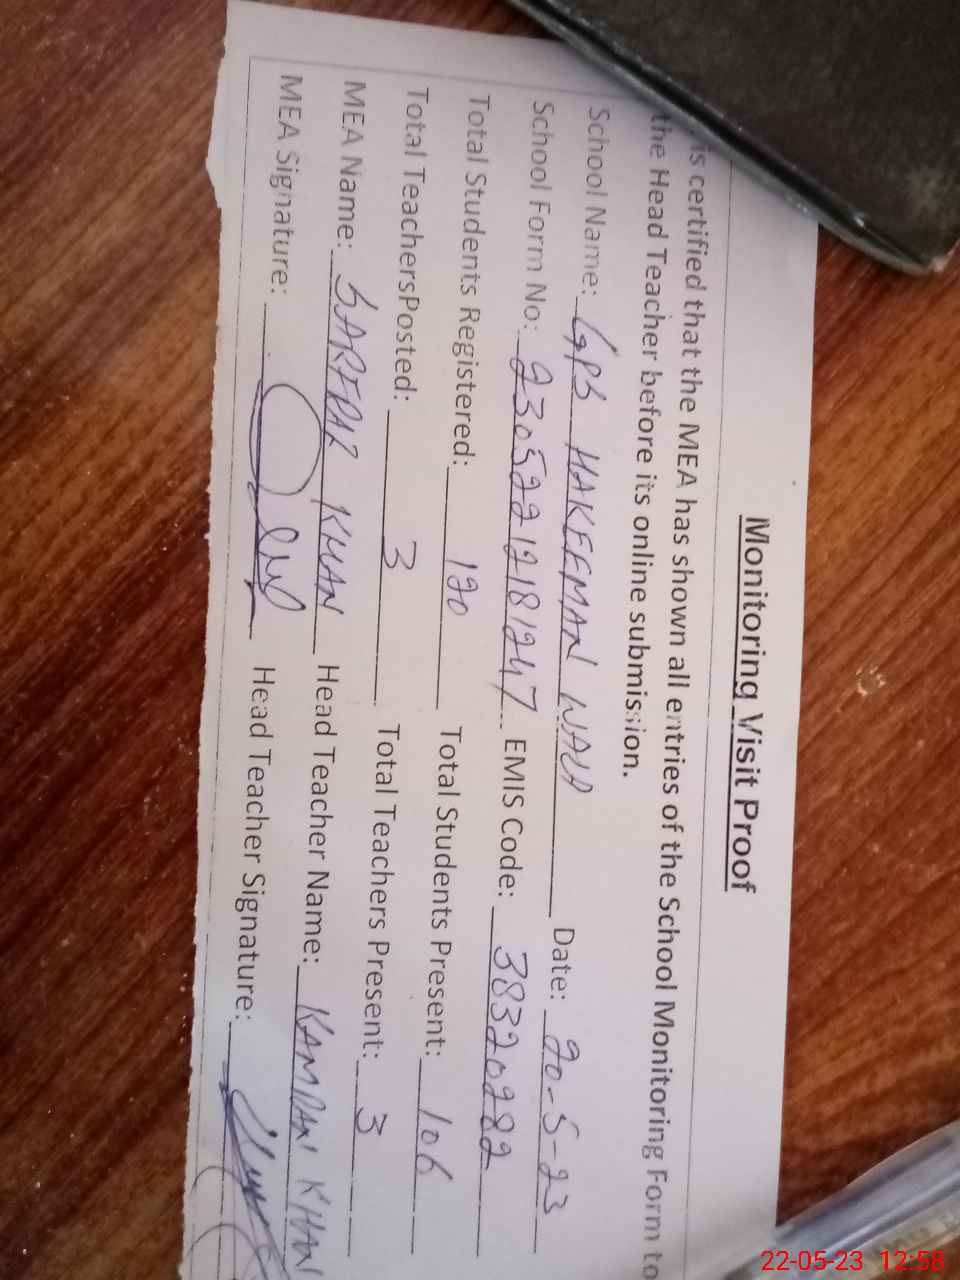 Monitoring Visit Proof
is certified that the MEA has shown all entries of the School Monitoring Form to
the Head Teacher before its online submission.
School Name: GPS HAKEEMAN WALA Date: 20-5-23
School Form No: 23052212181247 EMIS Code: 38320282
Total Students Registered: 120 Total Students Present: 106
Total TeachersPosted: 3 Total Teachers Present: 3
MEA Name: SARFRAZ KHAN Head Teacher Name: KAMRAN KHAN
MEA Signature: Head Teacher Signature:
22-05-23 12:58